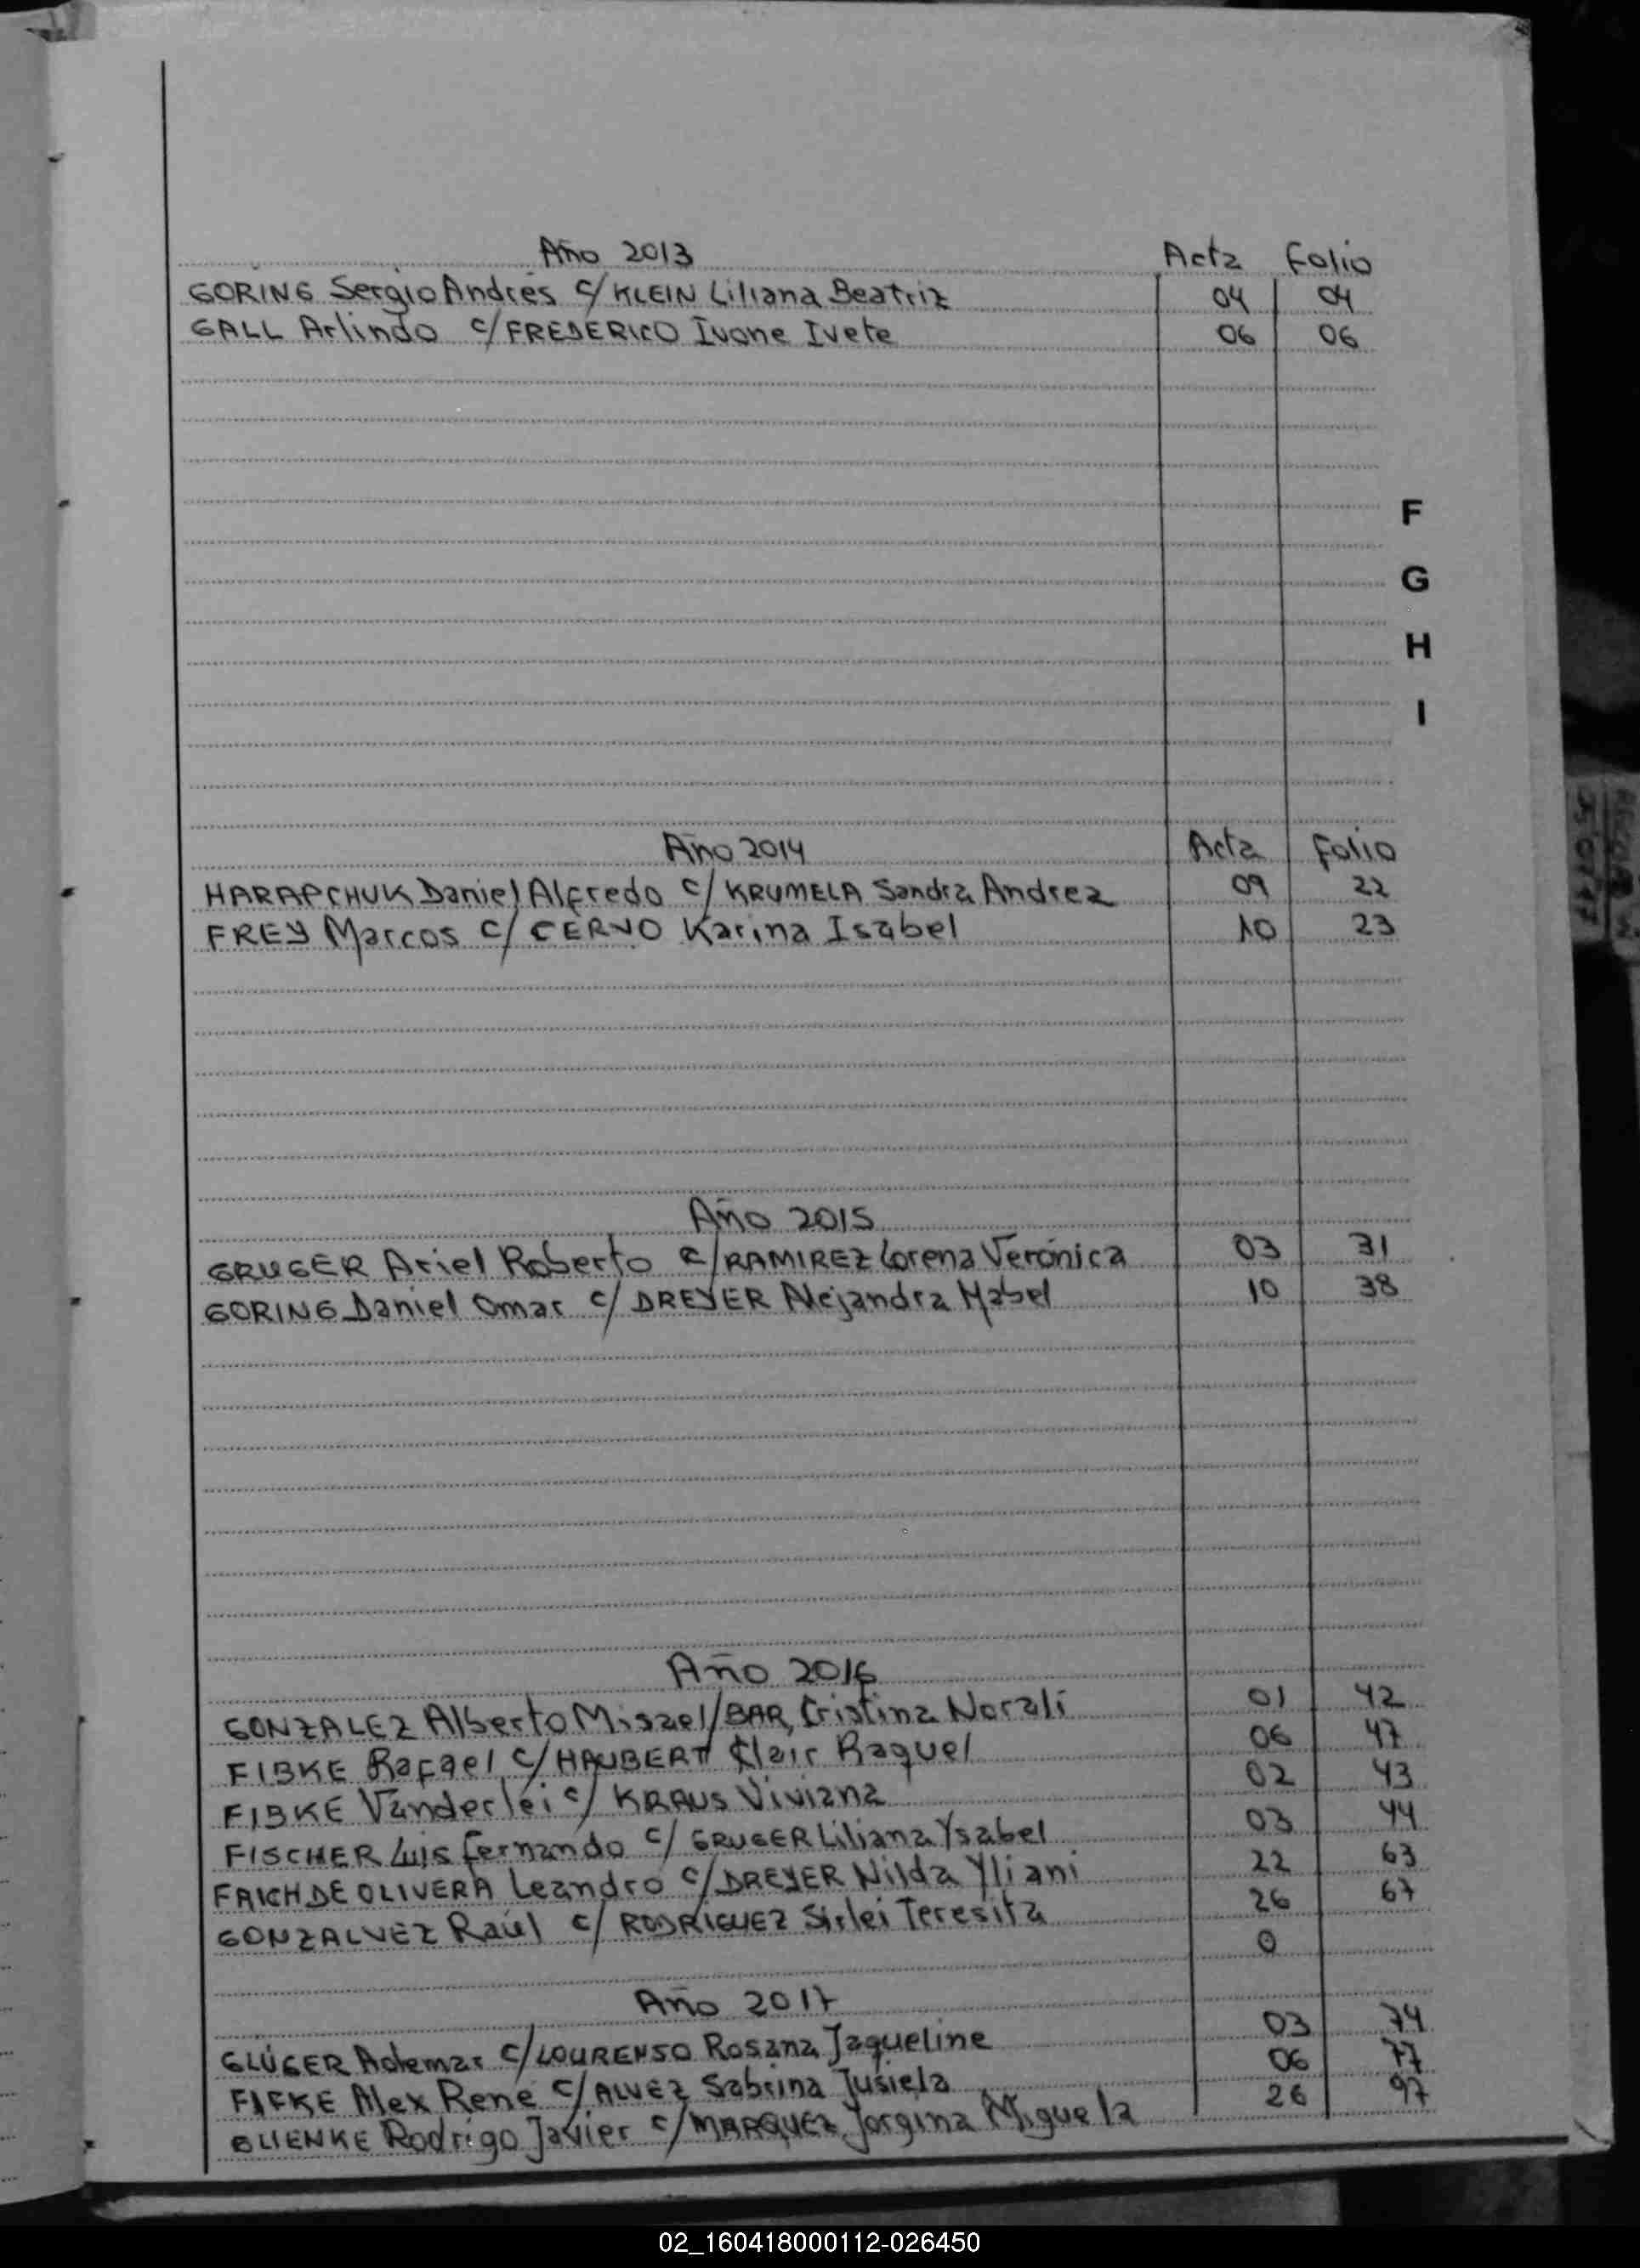 Año 2013 Acta Folio
GORING Sergio Andrés c/ KLEIN Liliana Beatriz 04 04
GALL Arlindo c/ FREDERICO Ivone Ivete 06 06
F
G
H
I
Año 2014 Acta Folio
HARAPCHUK Daniel Alfredo c/ KRUMELA Sandra Andrea 09 22
FREY Marcos c/ CERVO Karina Isabel 10 23
Año 2015
GRUGER Ariel Roberto c/ RAMIREZ Lorena Verónica 03 31
GORING Daniel Omar c/ DREYER Alejandra Mabel 10 38
Año 2016
GONZALEZ Alberto Misael / BAR, Cristina Norali 01 42
FIBKE Rafael c/ HAUBERT Clair Raquel 06 47
FIBKE Vanderlei c/ KRAUS Viviana 02 43
FISCHER Luis Fernando c/ GRUGER Liliana Ysabel 03 44
FAICH DE OLIVERA Leandro c/ DREYER Nilda Yliani 22 63
GONZALVEZ Raúl c/ RODRIGUEZ Sirlei Teresita 26 67
0
Año 2017
GLÜGER Ademar c/ LOURENSO Rosana Jaqueline 03 74
FIFKE Alex René c/ ALVEZ Sabrina Jusiela 06 77
GLIENKE Rodrigo Javier c/ MARQUEZ, Jorgina Miguela 26 97
02_160418000112-026450